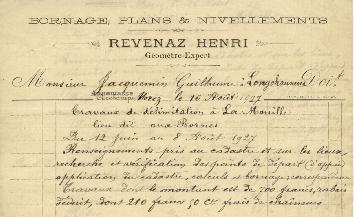 BORNAGE, PLANS & NIVELLEMENTS
REVENAZ HENRI
Géomètre-Expert
Monsieur Jacquemin Guilhume à Longchaumois Doit
Morez le 16 Août 1927
Travaux de délimitation à La Mouille
lieu dit aux Bornes
Du 12 juin au 8 Août 1927
Renseignements pris au cadastre et sur les lieux,
recherche et vérification des points de départ (d'après
application du cadastre, calculs et bornage
Travaux dont le montant est de 700 francs, rabais
déduit, dont 210 francs 50 cts frais de chaîneurs